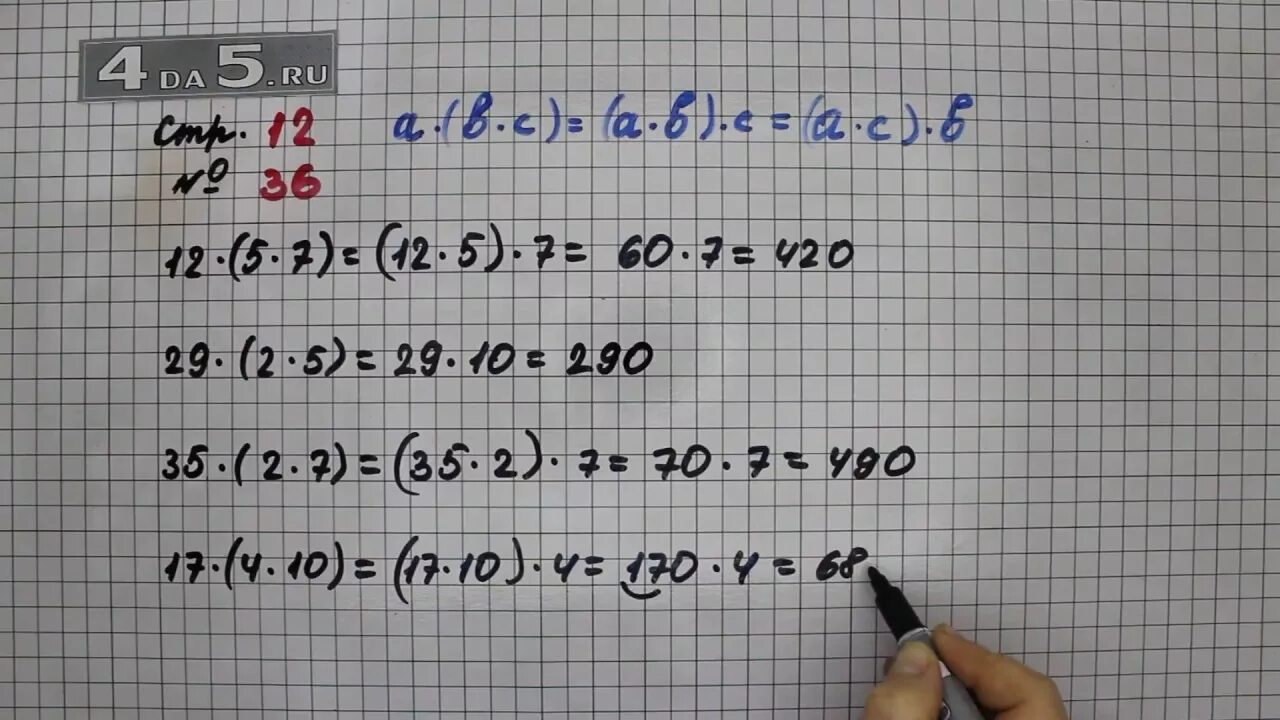 4 DA 5.RU
Стр. 12
а·(в·с)=(а·в)·с=(а·с)·в
№ 36
12·(5·7)=(12·5)·7= 60·7=420
29·(2·5)=29·10=290
35·(2·7)=(35·2)·7=70·7=490
17·(4·10)=(17·10)·4=170·4=68